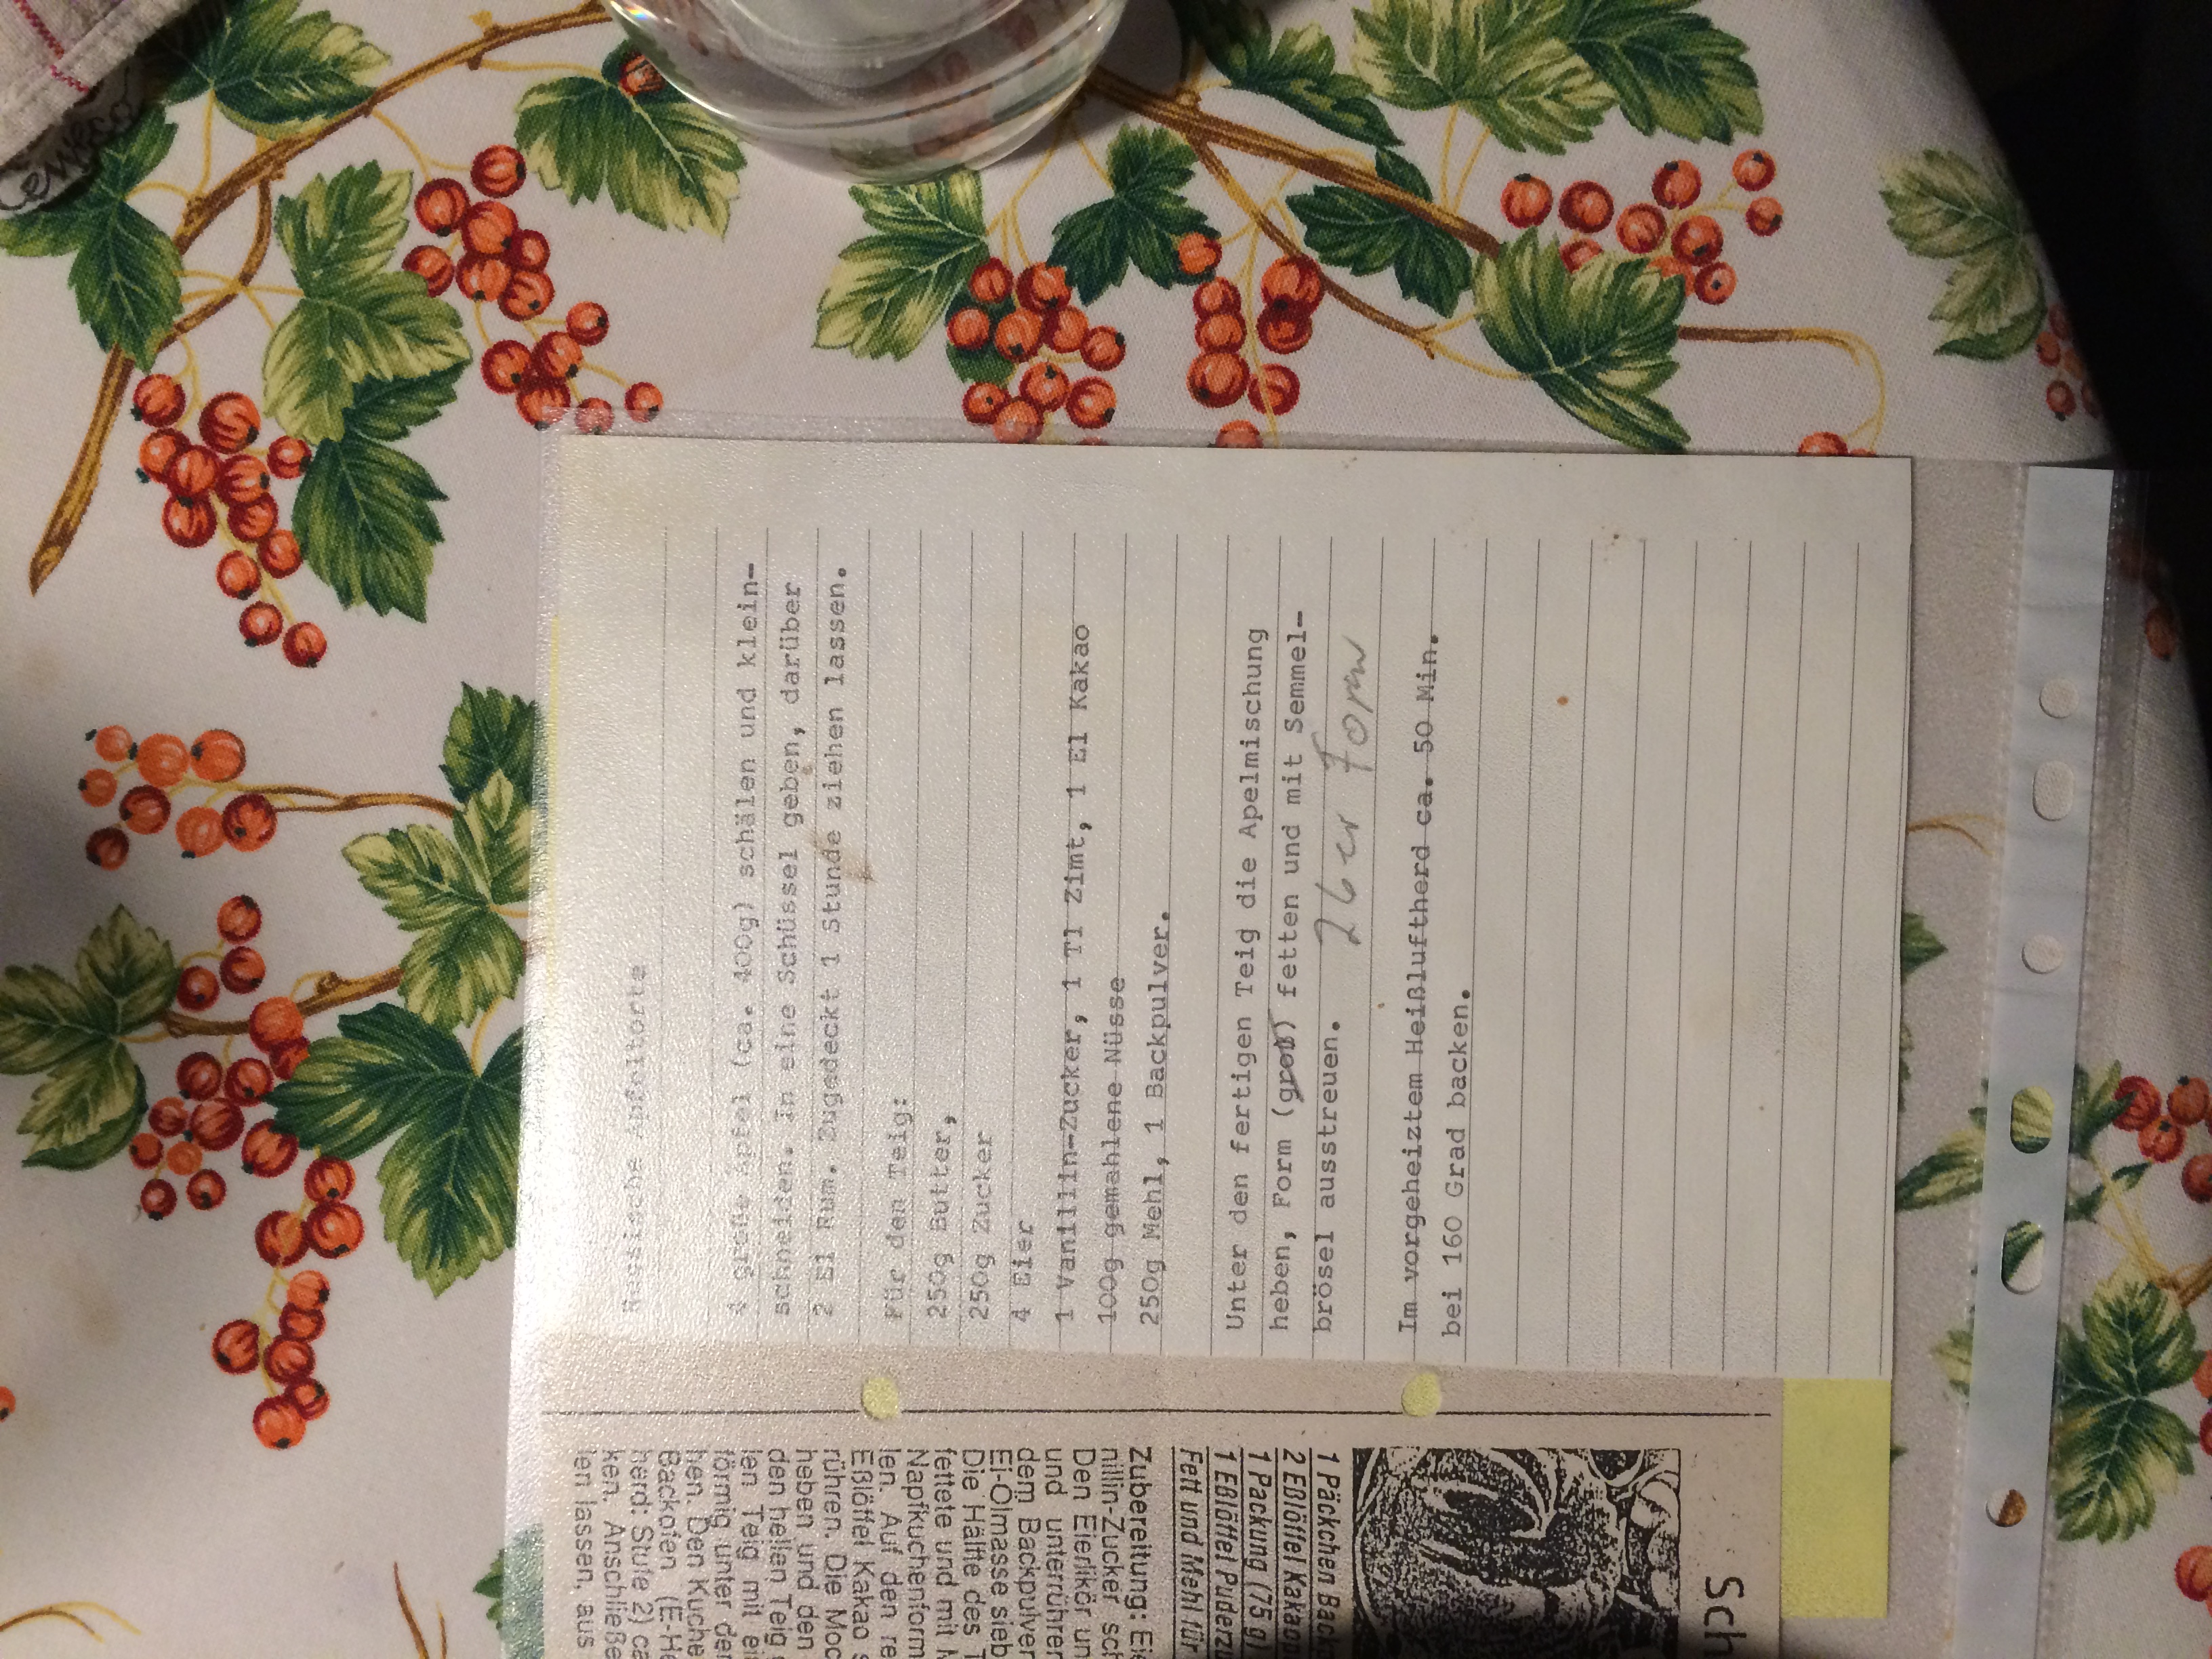 Hessische Apfeltorte
4 große Äpfel (ca. 400g) schälen und klein-
schneiden. In eine Schüssel geben, darüber
2 El Rum. Zugedeckt 1 Stunde ziehen lassen.
Für den Teig:
250g Butter,
250g Zucker
4 Eier
1 Vanillin-Zucker, 1 Tl Zimt, 1 El Kakao
100g gemahlene Nüsse
250g Mehl, 1 Backpulver.
Unter den fertigen Teig die Apelmischung
heben, Form (groß) fetten und mit Semmel-
brösel ausstreuen.
26er Form
Im vorgeheiztem Heißluftherd ca. 50 Min.
bei 160 Grad backen.
Sch
1 Päckchen Back
2 Eßlöffel Kakao
1 Packung (75 g)
1 Eßlöffel Puderzu
Fett und Mehl für
Zubereitung: Ei
nillin-Zucker sch
Den Eierlikör un
und unterrühren
dem Backpulver
Ei-Ölmasse sieb
Die Hälfte des T
fettete und mit M
Napfkuchenform
len. Auf den re
Eßlöffel Kakao s
rühren. Die Moc
heben und den
den hellen Teig
len Teig mit ei
förmig unter den
hen. Den Kuche
Backofen (E-He
herd: Stufe 2) ca
ken. Anschließe
len lassen, aus